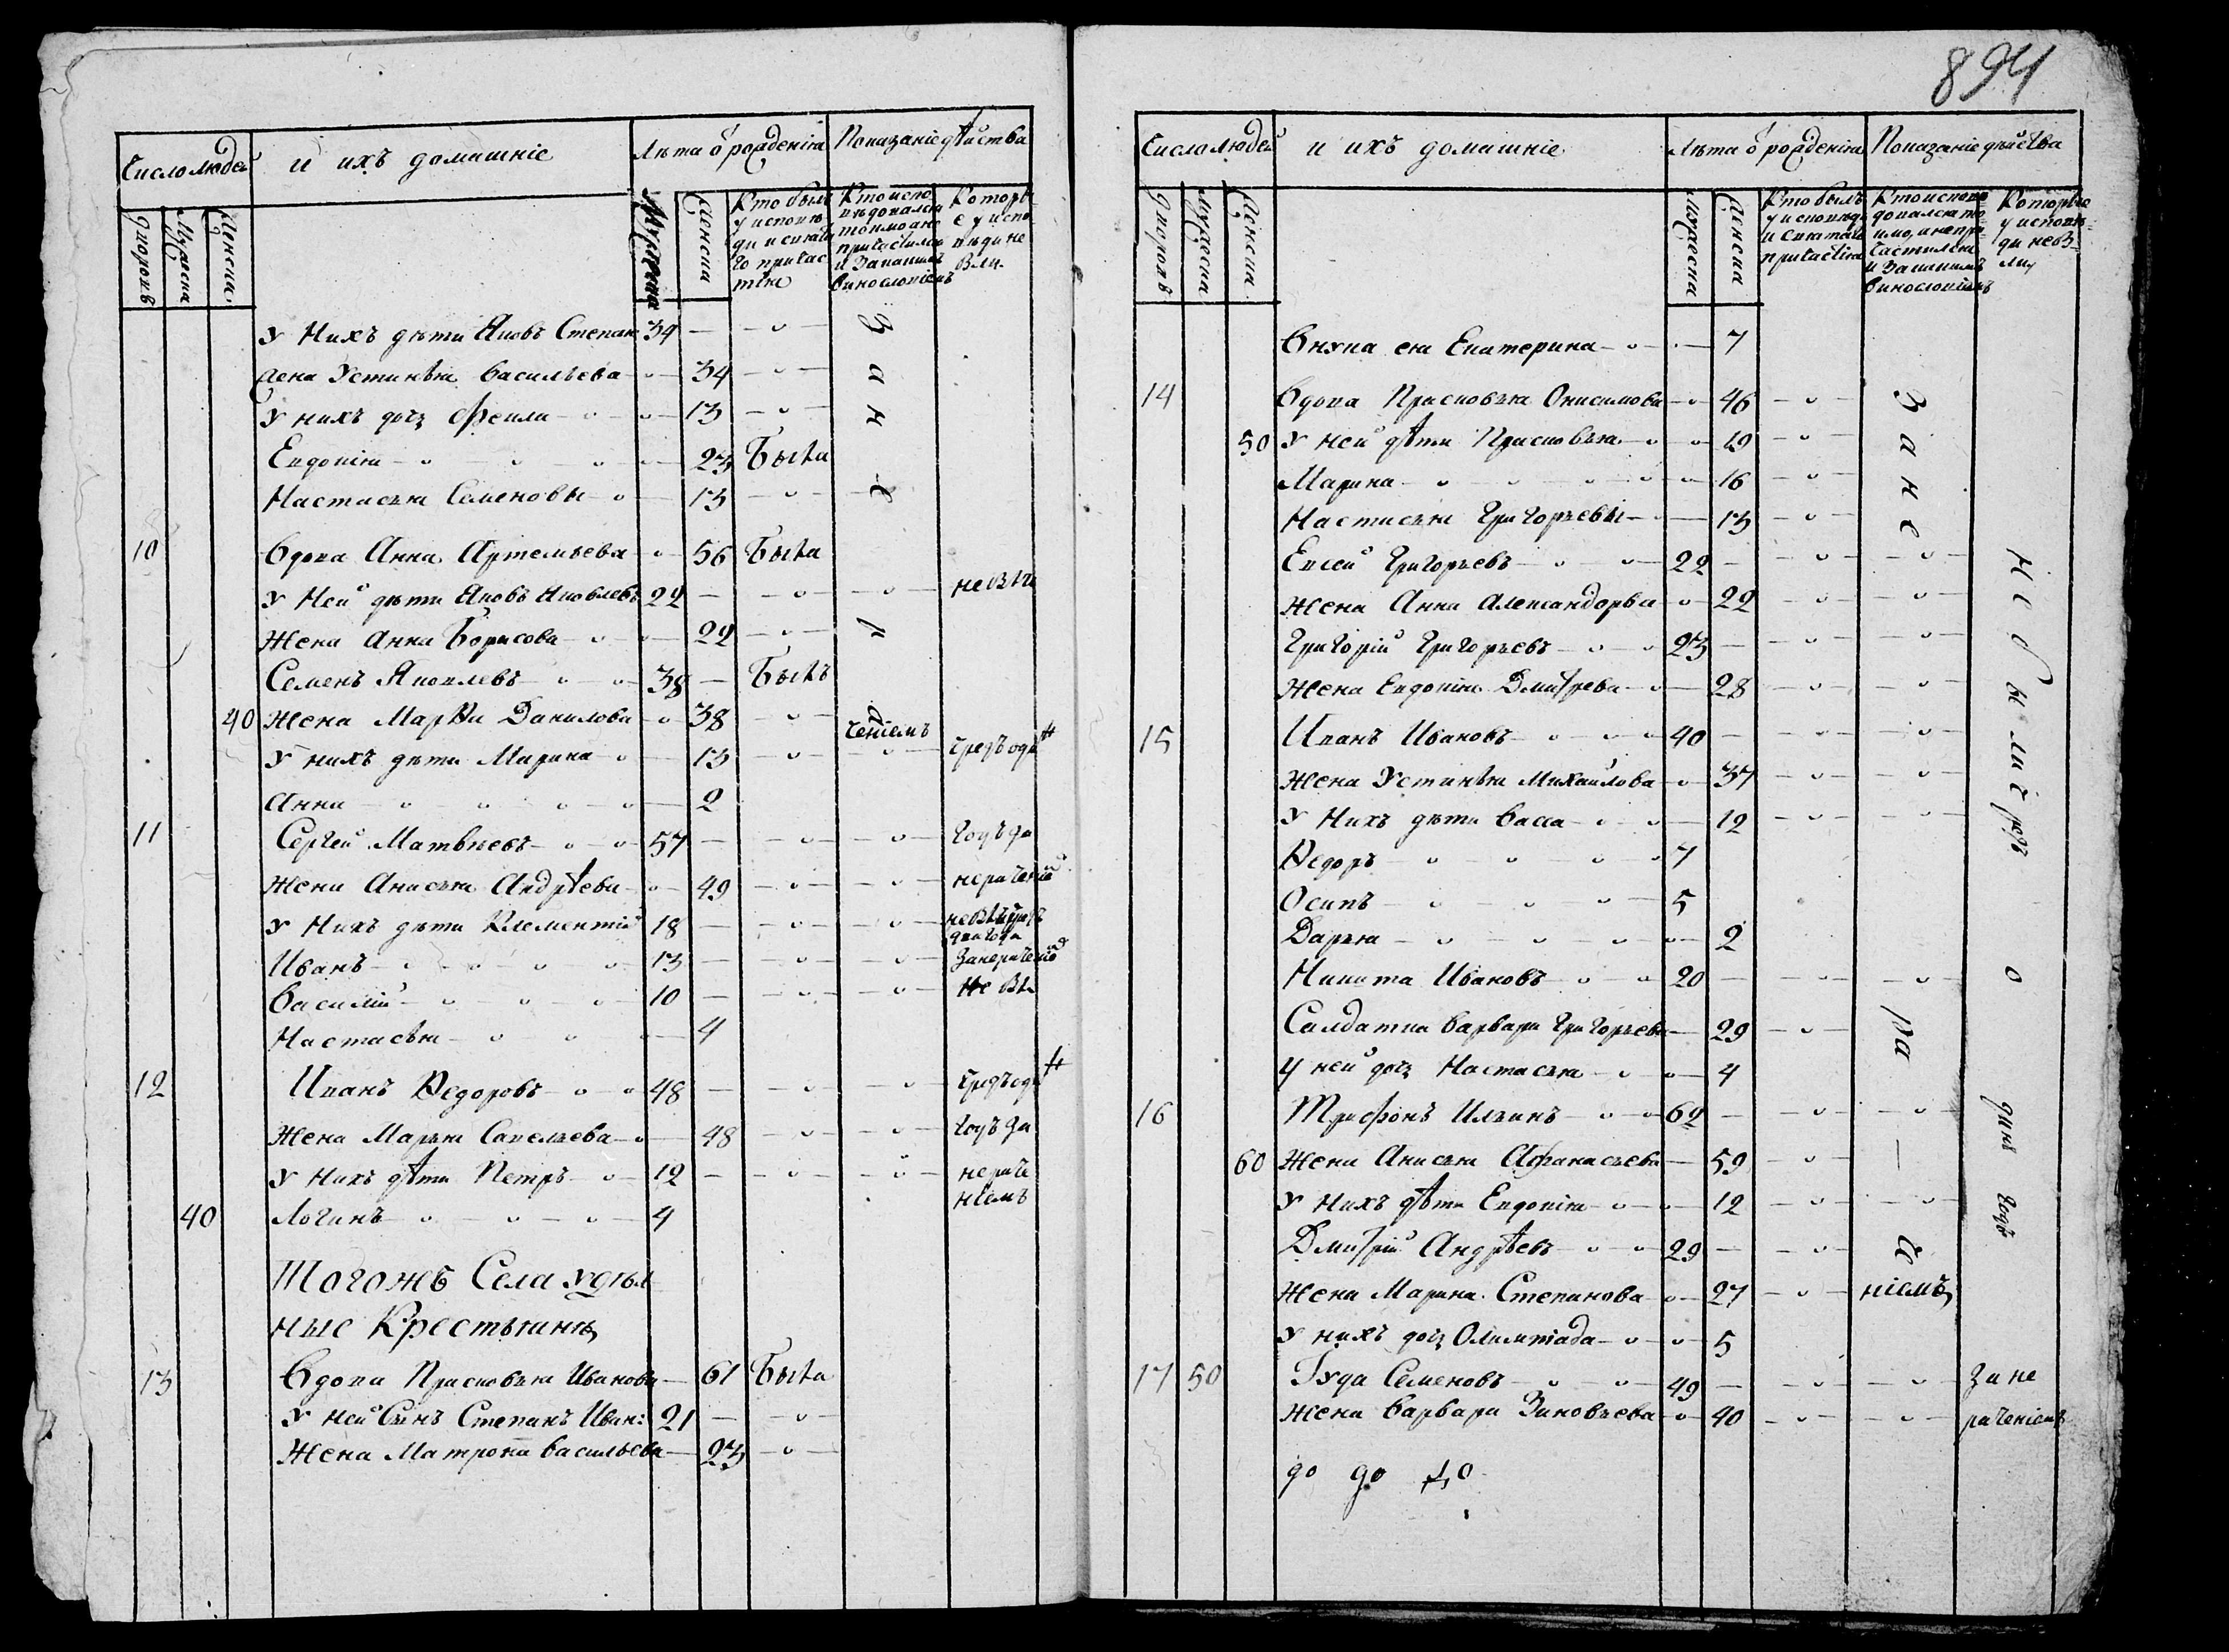 894
Число людей и ихъ домашніе Лѣта ѿ рожденія Показаніе дѣйства
дворовъ Мужеска Женска Мужеска Женска Кто былъ у исповѣди и святаго причастія Кто исповѣдовался токмо а не причастился и за какимъ винословіемъ Которые у исповѣди не были
у Нихъ дѣти Яковъ Степан: 34
жена Устинья Васильева 34
у нихъ дочь Фекла 13
Евдокія 23 Была
Настасья Семеновы 13
10 Вдова Анна Артемьева 56 Была
У Ней дѣти Яковъ Яковлевъ 22 не бы
Жена Анна Борисова 22
Семенъ Яковлевъ 38 Былъ
40 Жена Марѳа Данилова 38 ченіемъ
У нихъ дѣти Марина 13 чрезъ оди
Анна 2
11 Сергей Матвѣевъ 57 годъ за
Жена Анисья Андрѣева 49 нераченіе
У Нихъ дѣти Клементій 18 два года
Иванъ 13 за нераченіе
Василій 10 не бы
Настасья 4
12 Иванъ Ѳедоровъ 48 чрезъ оди
Жена Марья Савельева 48 годъ за
У Нихъ дѣти Петръ 12 нераче
ніемъ
40 Логинъ 4
Тогожъ Села удѣл
ные Крестьяня
13 Вдова Прасковья Иванова 61 Была
У ней Сынъ Степанъ Иван: 21
Жена Матрона Васильева 23
Зане ра
Число людей и ихъ домашніе Лѣта ѿ рожденія Показаніе дѣйства
дворовъ мужеска Женска мужеска Женска Кто былъ у исповѣди и святаго причастія Кто исповѣдовался токмо, а не причастился и за какимъ винословіемъ Которые у исповѣди не были
Внука ея Екатерина 7
14 Вдова Прасковья Онисимова 46
50 У ней дѣти Прасковья 19
Марина 16
Настасья Григорьевы 13
Евсей Григорьевъ 22
Жена Анна Александорва 22
Григорій Григорьевъ 23
Жена Евдокія Дмитрева 28
15 Иванъ Ивановъ 40
Жена Устинья Михайлова 37
У Нихъ дѣти Васса 12
Ѳедоръ 7
Осипъ 5
Дарья 2
Никита Ивановъ 20
Салдатка Варвара Григорьева 29
У ней дочь Настасья 4
16 Трифонъ Ильинъ 62
60 Жена Анисья Афанасьева 59
У Нихъ дѣти Евдокія 12
Дмитрій Андрѣевъ 29
Жена Марина Степанова 27 ніемъ
У нихъ дочь Олимпіада 5
17 50 Іуда Семеновъ 49 за не
Жена Варвара Зиновьева 40 раченіемъ
Зане ра че
Не были чрезъ о динъ годъ